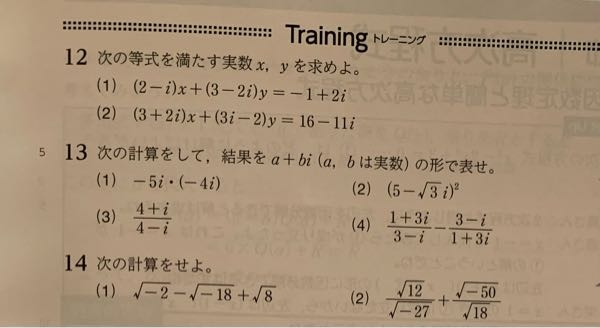 Training トレーニング
12 次の等式を満たす実数 x, y を求めよ。
(1) (2-i)x+(3-2i)y=-1+2i
(2) (3+2i)x+(3i-2)y=16-11i
5
13 次の計算をして，結果を a+bi (a, b は実数) の形で表せ。
(1) -5i・(-4i) (2) (5-√3 i)²
(3) (4+i)/(4-i) (4) (1+3i)/(3-i) - (3-i)/(1+3i)
14 次の計算をせよ。
(1) √-2-√-18+√8 (2) √12/√-27 + √-50/√18